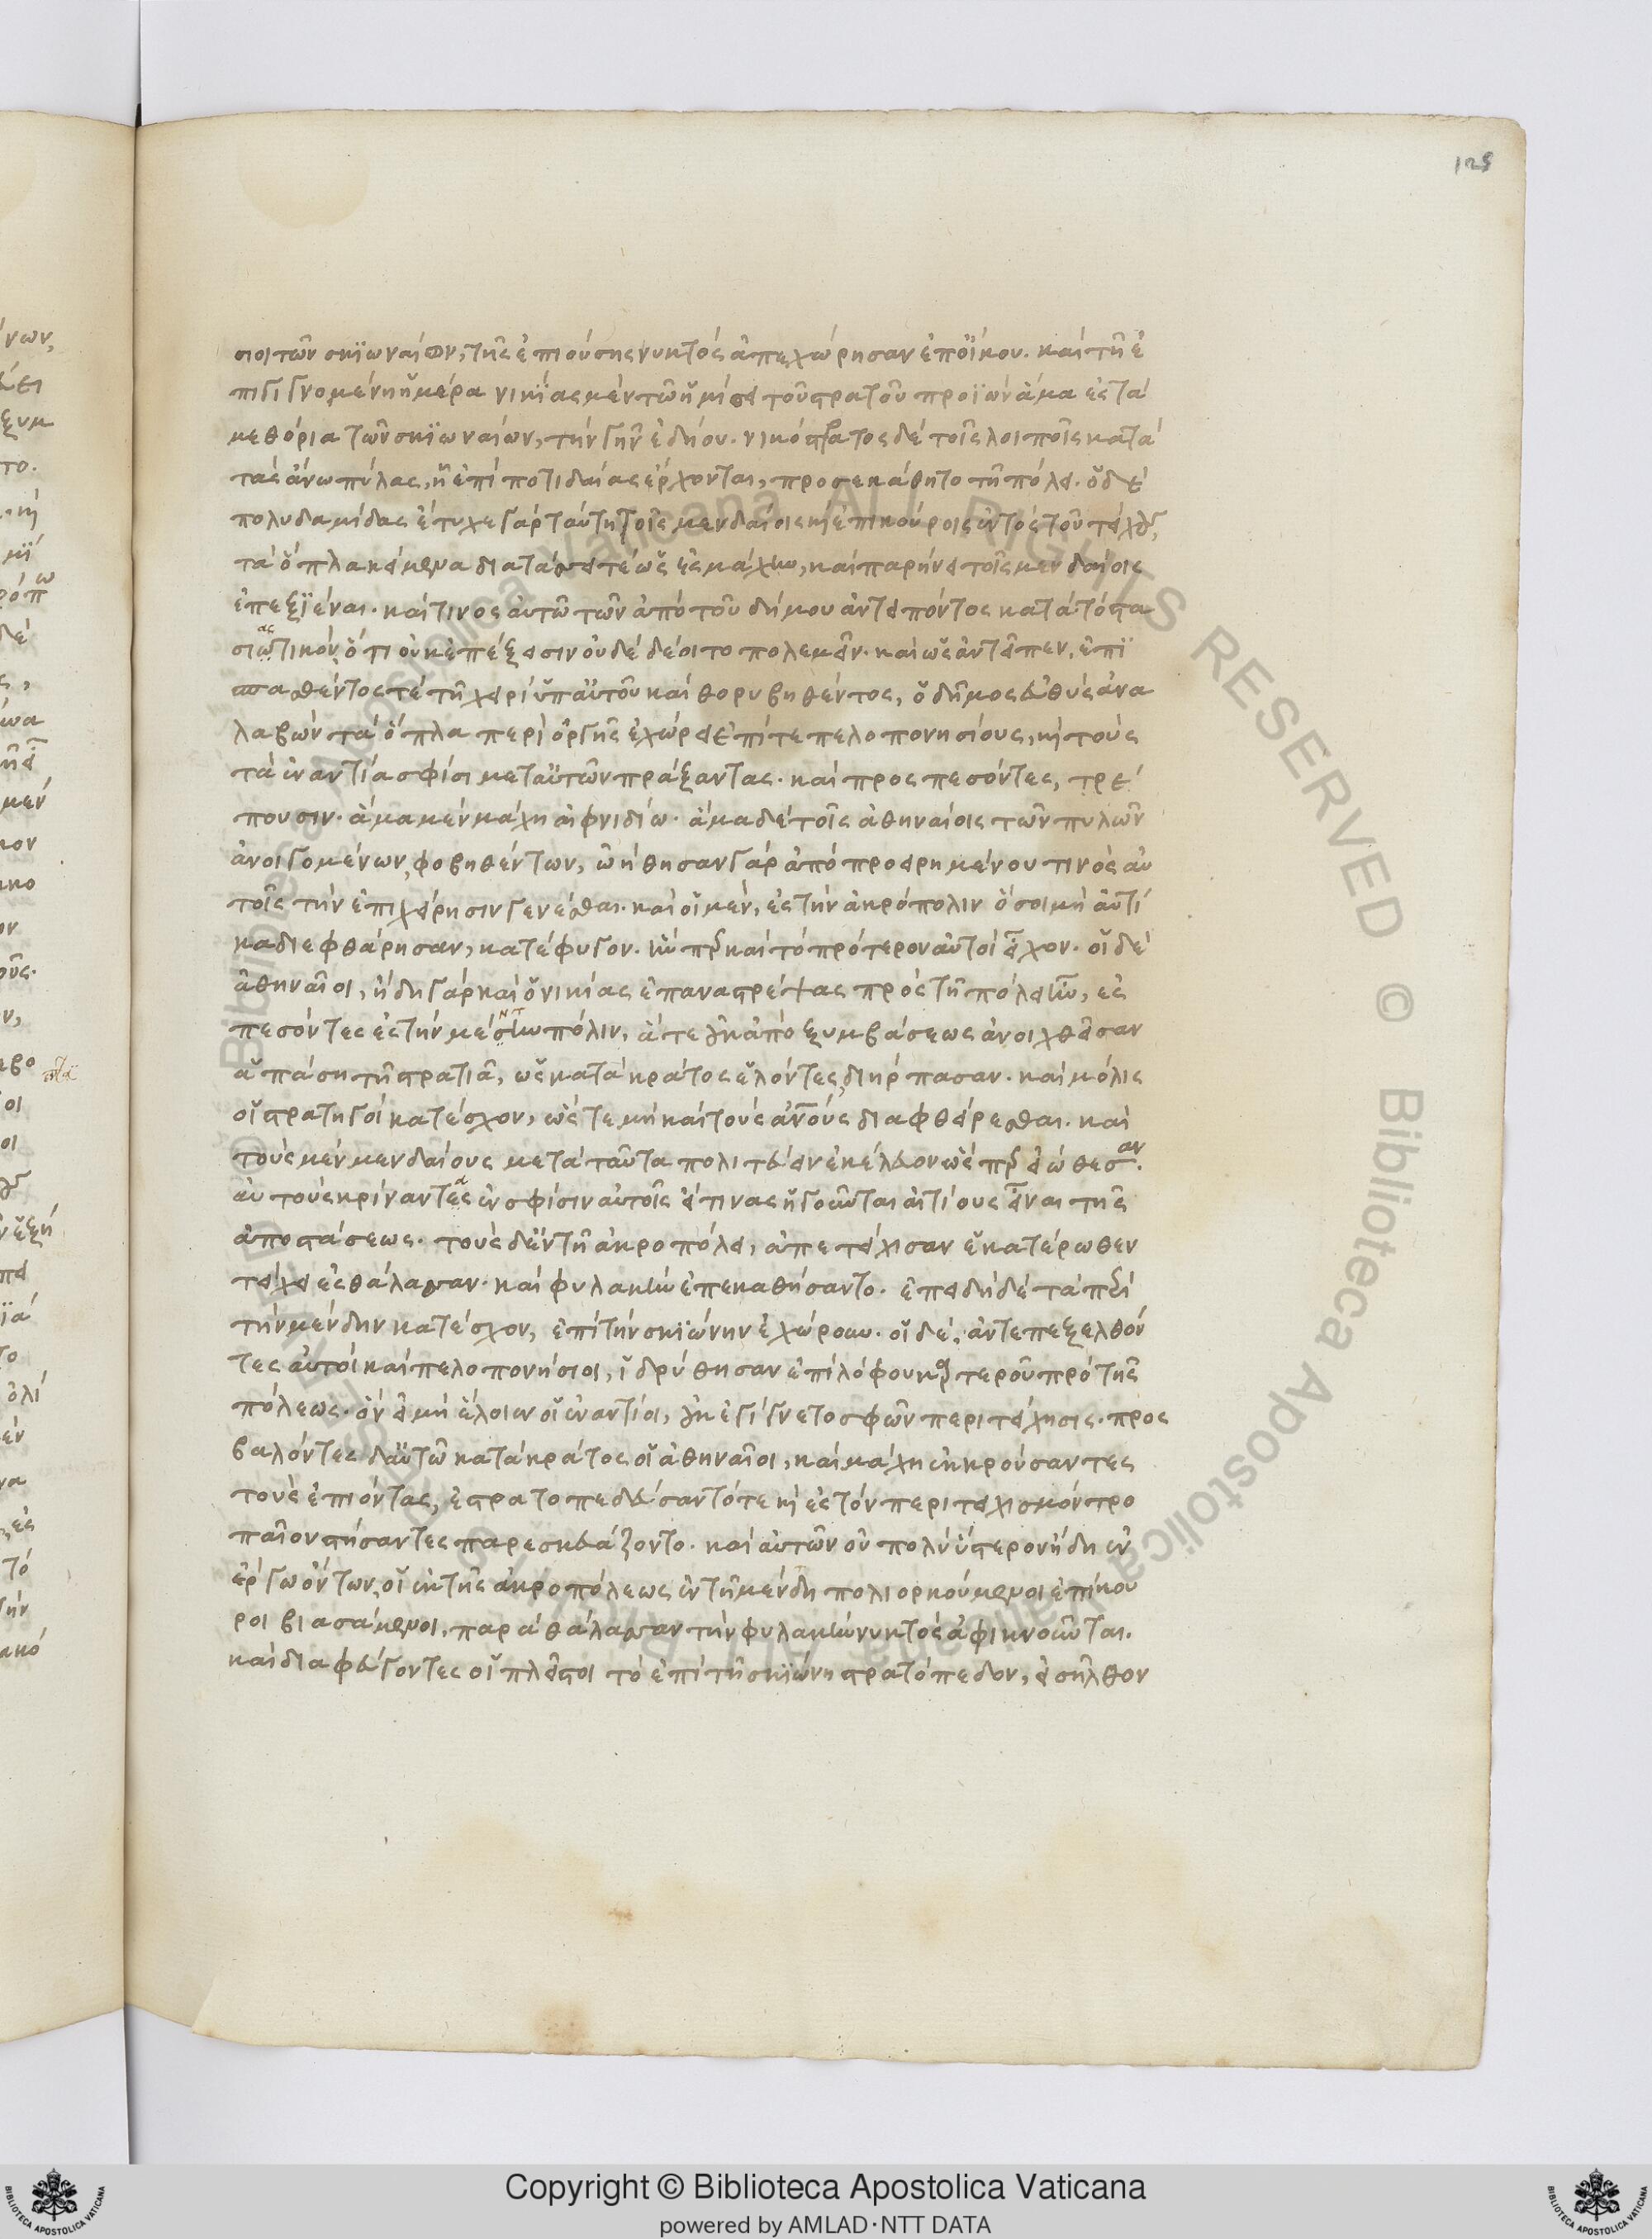 125
σιοι τῶν σκιωναίων, τῆς ἐπιούσης νυκτὸς ἀπεχώρησαν ἐπ' οἴκου. καὶ τῆ ἐ
πιγιγνομένη ἡμέρα νικίας μὲν τῶ ἡμίσει τοῦ στρατοῦ προϊὼν ἅμα ἐς τὰ
μεθόρια τῶν σκιωναίων, τὴν γῆν ἐδήου. νικόστρατος δὲ τοῖς λοιποῖς κατὰ
τὰς ἄνω πύλας, ἧ ἐπὶ ποτιδαίας ἔρχονται, προσεκάθητο τῆ πόλει. ὁ δὲ
πολυδαμίδας ἔτυχε γὰρ ταύτη τοῖς μενδαίοις καὶ ἐπικούροις ἐντὸς τοῦ τείχους
τὰ ὅπλα κείμενα διατάσσει τε ὡς ἐς μάχην, καὶ παρήνει τοῖς μενδαίοις
ἐπεξϊέναι. καί τινος αὐτῶ τῶν ἀπὸ τοῦ δήμου ἀντειπόντος κατὰ τὸ στα
σιωτικὸν, ὅτι οὐκ ἐπέξεισιν οὐδὲ δέοιτο πολεμεῖν. καὶ ὡς ἀντεῖπεν, ἐπι
σπασθέντος τὲ τῆ χειρὶ ὑπ' αὐτοῦ καὶ θορυβηθέντος, ὁ δῆμος εὐθὺς ἀνα
λαβὼν τὰ ὅπλα περὶ ὀργῆς ἐχώρει ἐπί τε πελοπονησίους, καὶ τοὺς
τὰ ἐναντία σφίσι μετ' αὐτῶν πράξαντας. καὶ προσπεσόντες, τρέ
πουσιν. ἅμα μὲν μάχη αἰφνιδίω. ἅμα δὲ τοῖς ἀθηναίοις τῶν πυλῶν
ἀνοιγομένων, φοβηθέντων, ὠήθησαν γὰρ ἀπὸ προειρημένου τινὸς αὐ
τοῖς τὴν ἐπιχείρησιν γενέσθαι. καὶ οἱ μὲν, ἐς τὴν ἀκρόπολιν ὅσοι μὴ αὐτί
κα διεφθάρησαν, κατέφυγον. ἥνπερ καὶ τὸ πρότερον αὐτοὶ εἶχον. οἱ δὲ
ἀθηναῖοι, ἤδη γὰρ καὶ ὁ νικίας ἐπαναστρέψας πρὸς τῆ πόλει ἦν, ἐς
πεσόντες ἐς τὴν μέσην πόλιν, ἅτε οὐκ ἀπὸ ξυμβάσεως ἀνοιχθεῖσαν
ἁπάση τῆ στρατιᾶ, ὡς κατὰ κράτος ἑλόντες, διήρπασαν. καὶ μόλις
οἱ στρατηγοὶ κατέσχον, ὥστε μὴ καὶ τοὺς ἀνους διαφθείρεσθαι. καὶ
τοὺς μὲν μενδαίους μετὰ ταῦτα πολιτεύειν ἐκέλευον ὥσπερ εἰώθεσαν.
αὐτοὺς κρίναντες ἐν σφίσιν αὐτοῖς εἴ τινας ἡγοῦνται αἰτίους εἶναι τῆς
ἀποστάσεως. τοὺς δ' ἐν τῆ ἀκροπόλει, ἀπετείχισαν ἑκατέρωθεν
τείχει ἐς θάλασσαν. καὶ φυλακὴν ἐπεκαθήσαντο. ἐπειδὴ δὲ τὰ περὶ
τὴν μένδην κατέσχον, ἐπὶ τὴν σκιώνην ἐχώρουν. οἱ δὲ, ἀντεπεξελθόν
τες αὐτοὶ καὶ πελοπονήσιοι, ἱδρύθησαν ἐπὶ λόφου καρτεροῦ πρὸ τῆς
πόλεως. ὃν εἰ μὴ ἕλοιεν οἱ ἐναντίοι, οὐκ ἐγίγνετο σφῶν περιτείχησις. προς
βαλόντες δ' αὐτῶ κατὰ κράτος οἱ ἀθηναῖοι, καὶ μάχη ἐκκρούσαντες
τοὺς ἐπιόντας, ἐστρατοπεδεύσαντό τε καὶ ἐς τὸν περιτειχισμὸν τρο
παῖον στήσαντες παρεσκευάζοντο. καὶ αὐτῶν οὐ πολὺ ὕστερον ἤδη ἐν
ἔργω ὄντων, οἱ ἐκ τῆς ἀκροπόλεως ἐν τῆ μένδη πολιορκούμενοι ἐπίκου
ροι βιασάμενοι, παρὰ θάλασσαν τὴν φυλακὴν νυκτὸς ἀφικνοῦνται.
καὶ διαφεύγοντες οἱ πλεῖστοι τὸ ἐπὶ τῆ σκιώνη στρατόπεδον, ἐσῆλθον
© Biblioteca Apostolica Vaticana ALL RIGHTS RESERVED
Copyright © Biblioteca Apostolica Vaticana
powered by AMLAD·NTT DATA
BIBLIOTECA APOSTOLICA VATICANA
BIBLIOTECA APOSTOLICA VATICANA